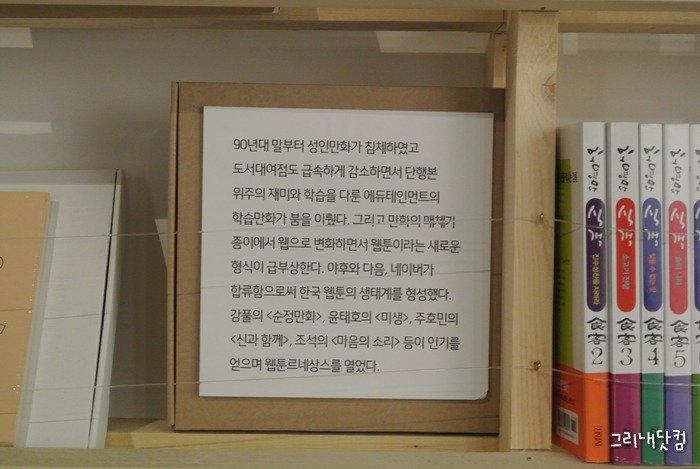 90년대 말부터 성인만화가 침체하였고
도서대여점도 급속하게 감소하면서 단행본
위주의 재미와 학습을 다룬 에듀테인먼트의
학습만화가 붐을 이뤘다. 그리고 만화의 매체가
종이에서 웹으로 변화하면서 웹툰이라는 새로운
형식이 급부상한다. 야후와 다음, 네이버가
합류함으로써 한국 웹툰의 생태계를 형성했다.
강풀의 <순정만화>, 윤태호의 <미생>, 주호민의
<신과 함께>, 조석의 <마음의 소리> 등이 인기를
얻으며 웹툰르네상스를 열었다.
허영만
식객
2
허영만
식객
소고기 전쟁
3
허영만
식객
4
허영만
식객
5
그리내닷컴